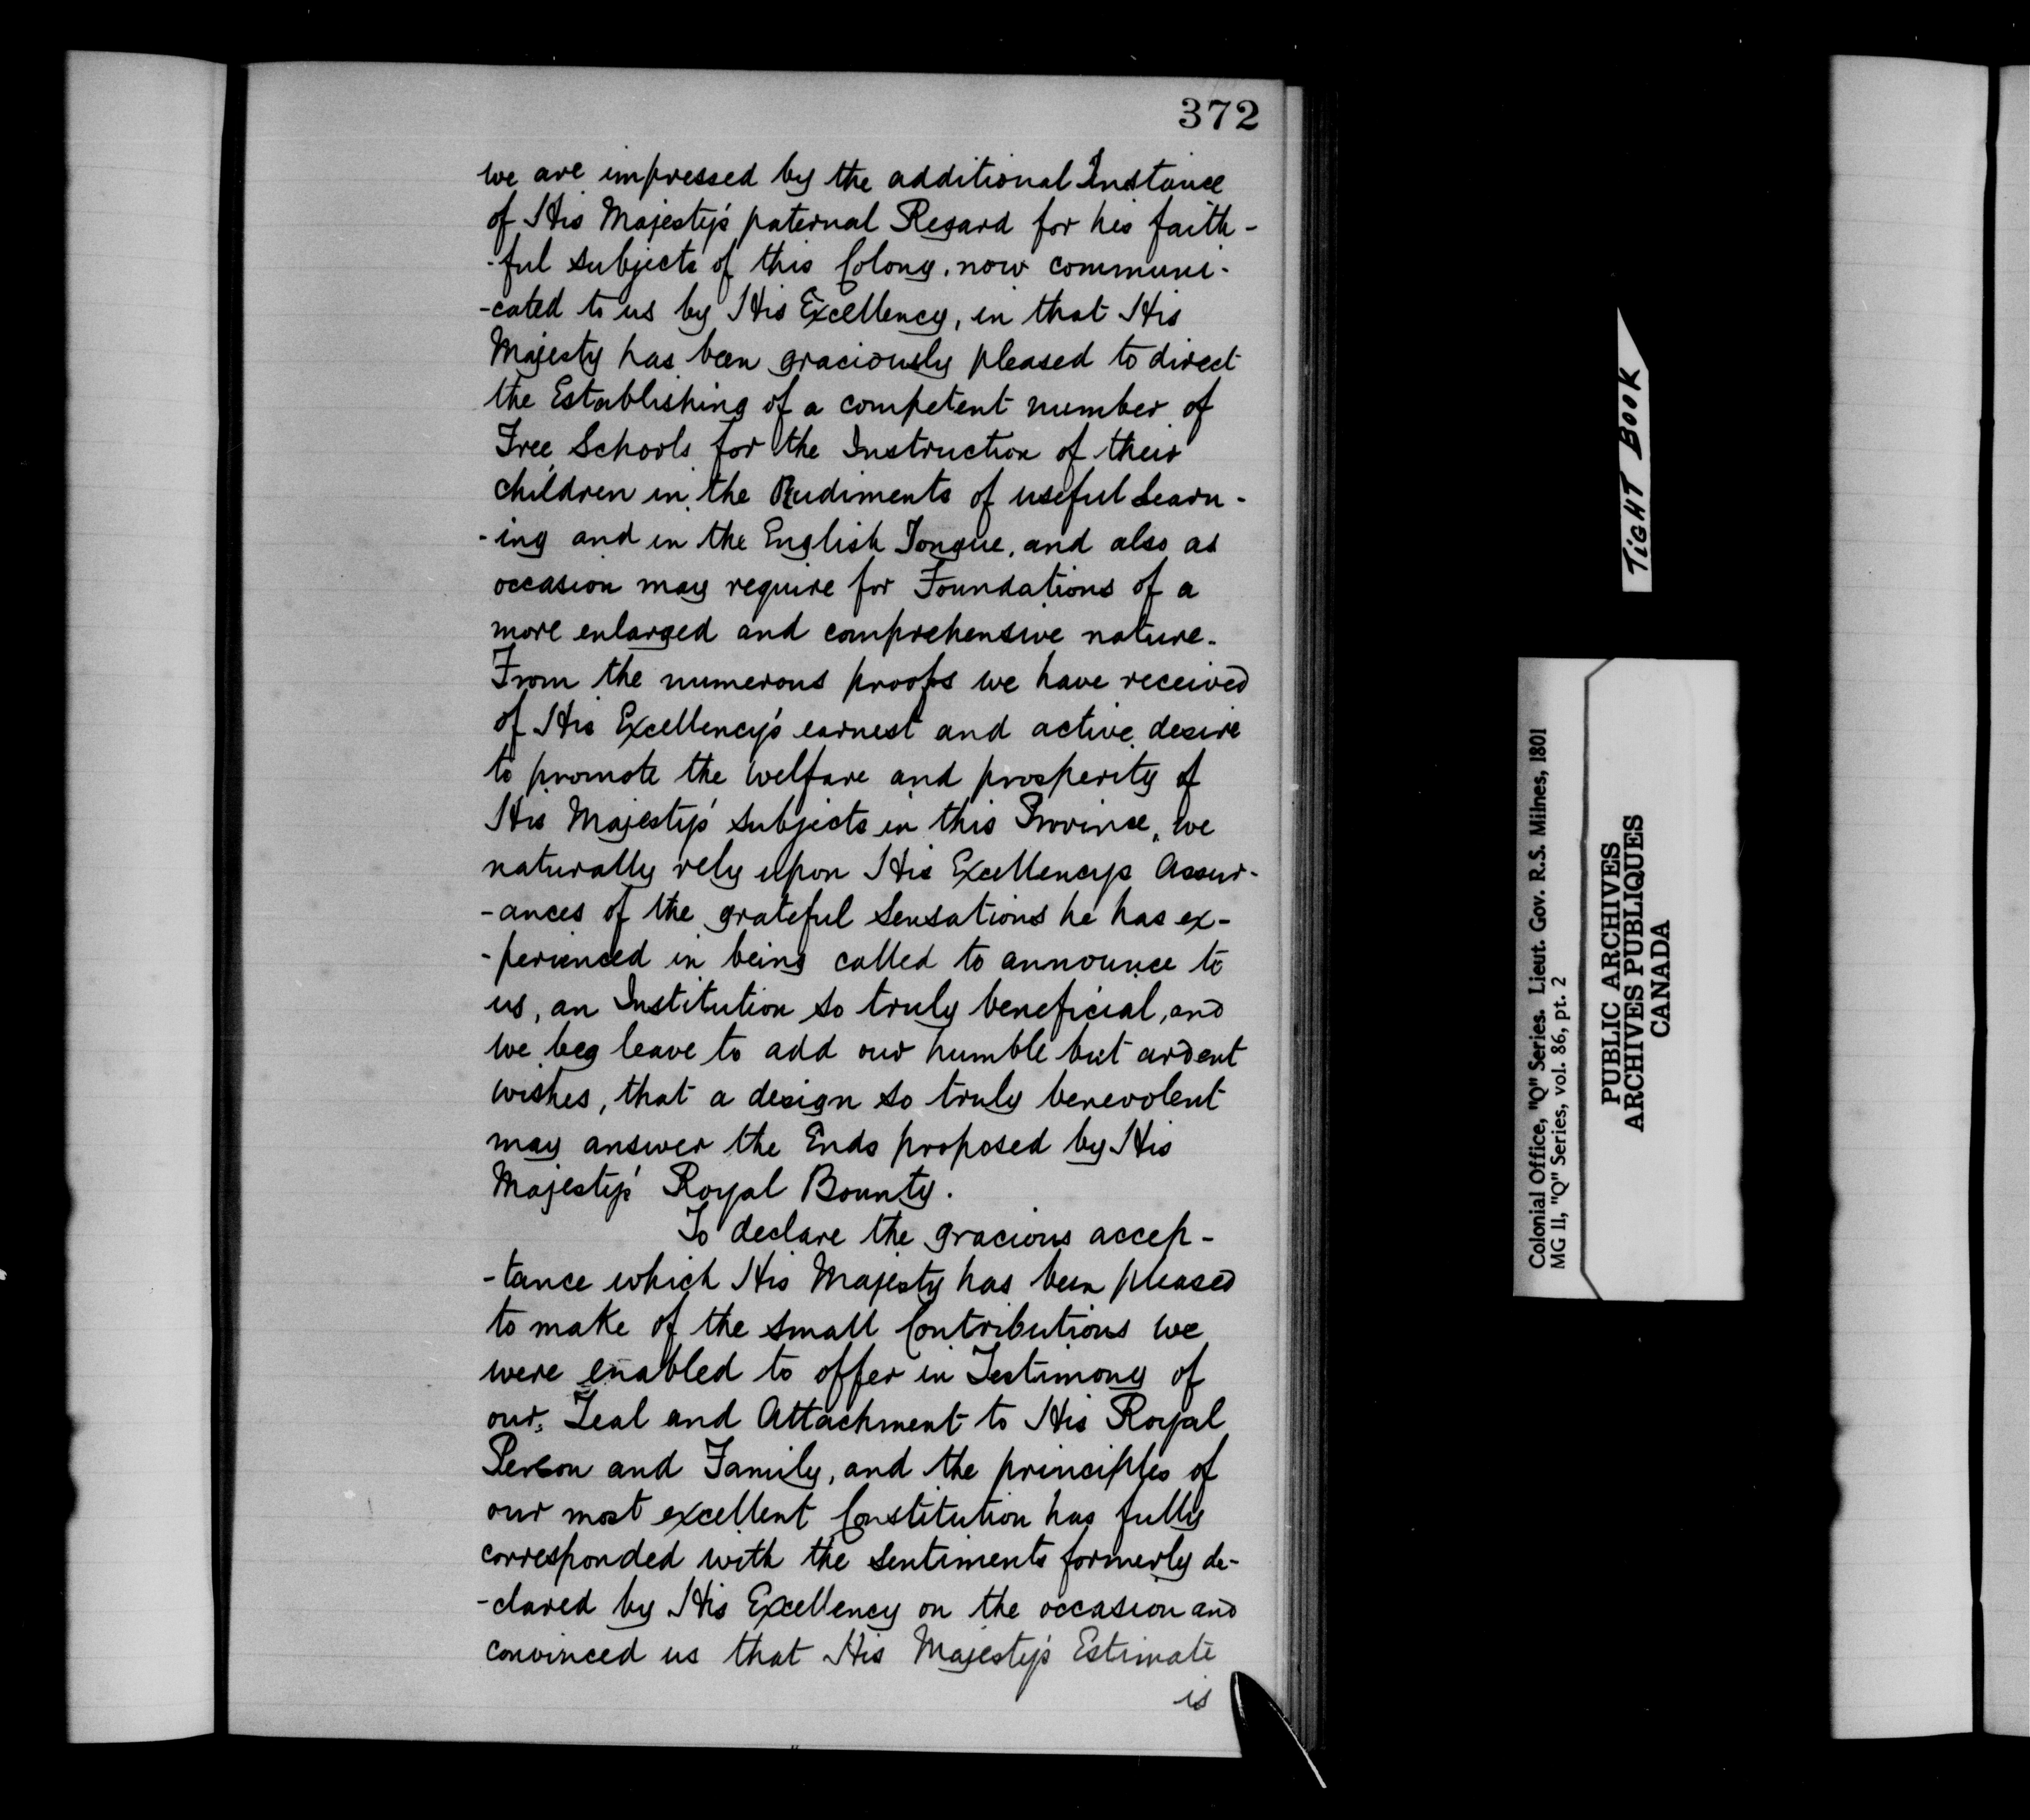 372
we are impressed by the additional Instance
of His Majesty's paternal Regard for his faith-
-ful subjects of this Colony, now communi-
-cated to us by His Excellency, in that His
Majesty has been graciously pleased to direct
the Establishing of a competent number of
Free Schools for the Instruction of their
children in the Rudiments of useful Learn-
-ing and in the English Tongue, and also as
occasion may require for Foundations of a
more enlarged and comprehensive nature.
From the numerous proofs we have received
of His Excellency's earnest and active desire
to promote the welfare and prosperity of
His Majesty's subjects in this Province, we
naturally rely upon His Excellencys Assur-
-ances of the grateful Sensations he has ex-
-perienced in being called to announce to
us, an Institution so truly beneficial, and
we beg leave to add our humble but ardent
wishes, that a design so truly benevolent
may answer the Ends proposed by His
Majesty's Royal Bounty.
To declare the gracious accep-
-tance which His Majesty has been pleased
to make of the small Contributions we
were enabled to offer in Testimony of
our Zeal and Attachment to His Royal
Person and Family, and the principles of
our most excellent Constitution has fully
corresponded with the sentiments formerly de-
-clared by His Excellency on the occasion and
convinced us that His Majesty's Estimate
is
TIGHT BOOK
Colonial Office, "Q" Series. Lieut. Gov. R.S. Milnes, 1801
MG 11, "Q" Series, vol. 86, pt. 2
PUBLIC ARCHIVES
ARCHIVES PUBLIQUES
CANADA